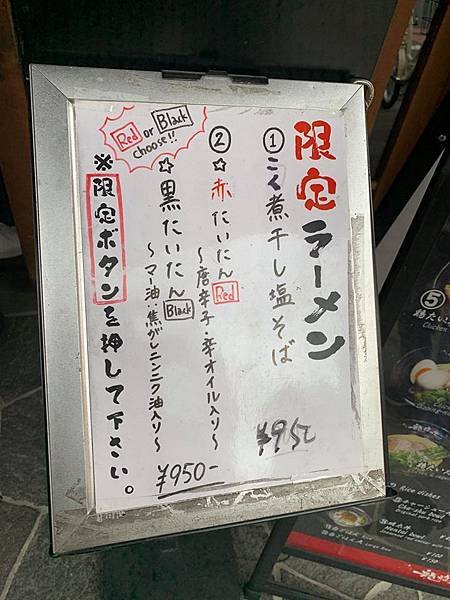 限定ラーメン
①こく煮干し塩そば
¥950
②☆赤たいたん Red
～唐辛子・辛オイル入り～
☆黒たいたん Black
～マー油:焦がしニンニク油入り～
¥950-
Red or Black
choose!!
※限定ボタンを押して下さい。
⑤
Chicken
Rice dishes
Cha-shu bowl
Menlei bowl